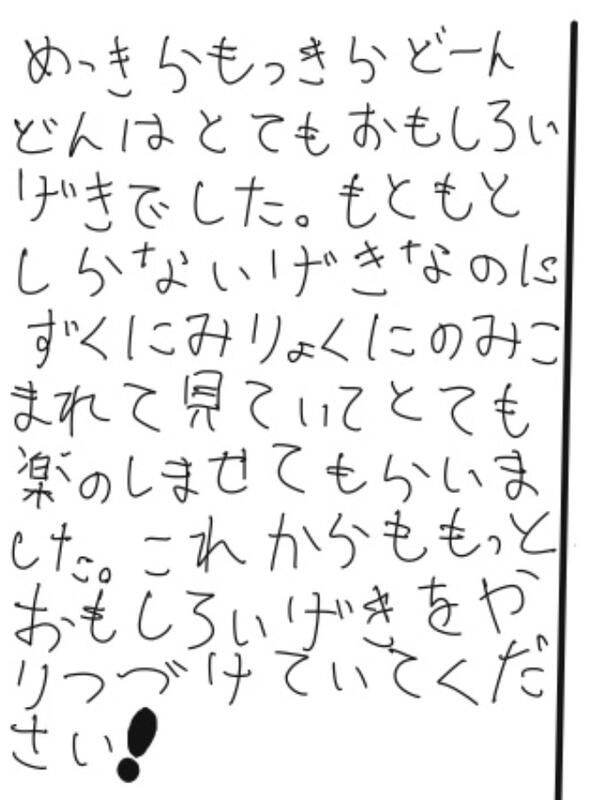 めっきらもっきらどーん
どんはとてもおもしろい
げきでした。もともと
しらないげきなのに
ずくにみりょくにのみこ
まれて見ていてとても
楽のしませてもらいま
した。これからももっと
おもしろいげきをや
りつづけていてくだ
さい!